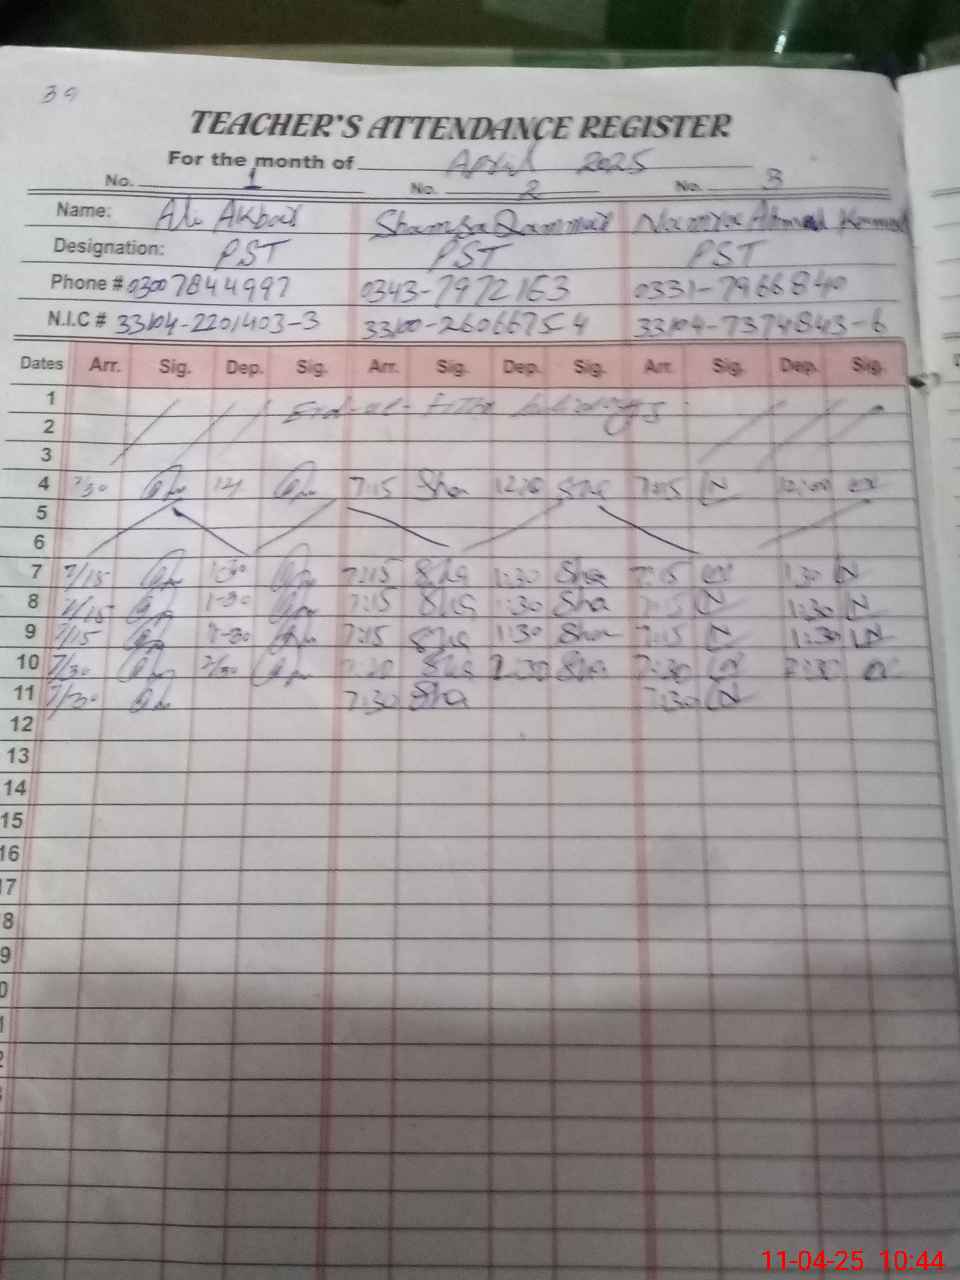 39
TEACHER'S ATTENDANCE REGISTER
For the month of April 2025
No. 1 No. 2 No. 3
Name: Ali Akbar Shamsa Qammar Namra Ahmad
Designation: PST PST PST
Phone # 03007844997 0343-7972163 0331-7966840
N.I.C # 33104-2201403-3 33100-26066754 33104-7374843-6
Dates Arr. Sig. Dep. Sig. Arr. Sig. Dep. Sig. Arr. Sig. Dep. Sig.
1 Eid-ul-Fitar holidays
2
3
4 7/30 7:15 Sha Sha 7:15 N 12:00
5
6
7 7/15 1-30 7:15 Sha 1:30 Sha 7:15 1:30 N
8 7/15 1-30 7:15 Sha 1:30 Sha 7:15 N 1:30 N
9 7/15 1-30 7:15 Sha 1:30 Sha 7:15 N 1:30 N
10 7/30 Sha Sha 7:30
11 7/30 7:30 Sha 7:30 N
12
13
14
15
16
17
8
9
0
1
2
11-04-25 10:44